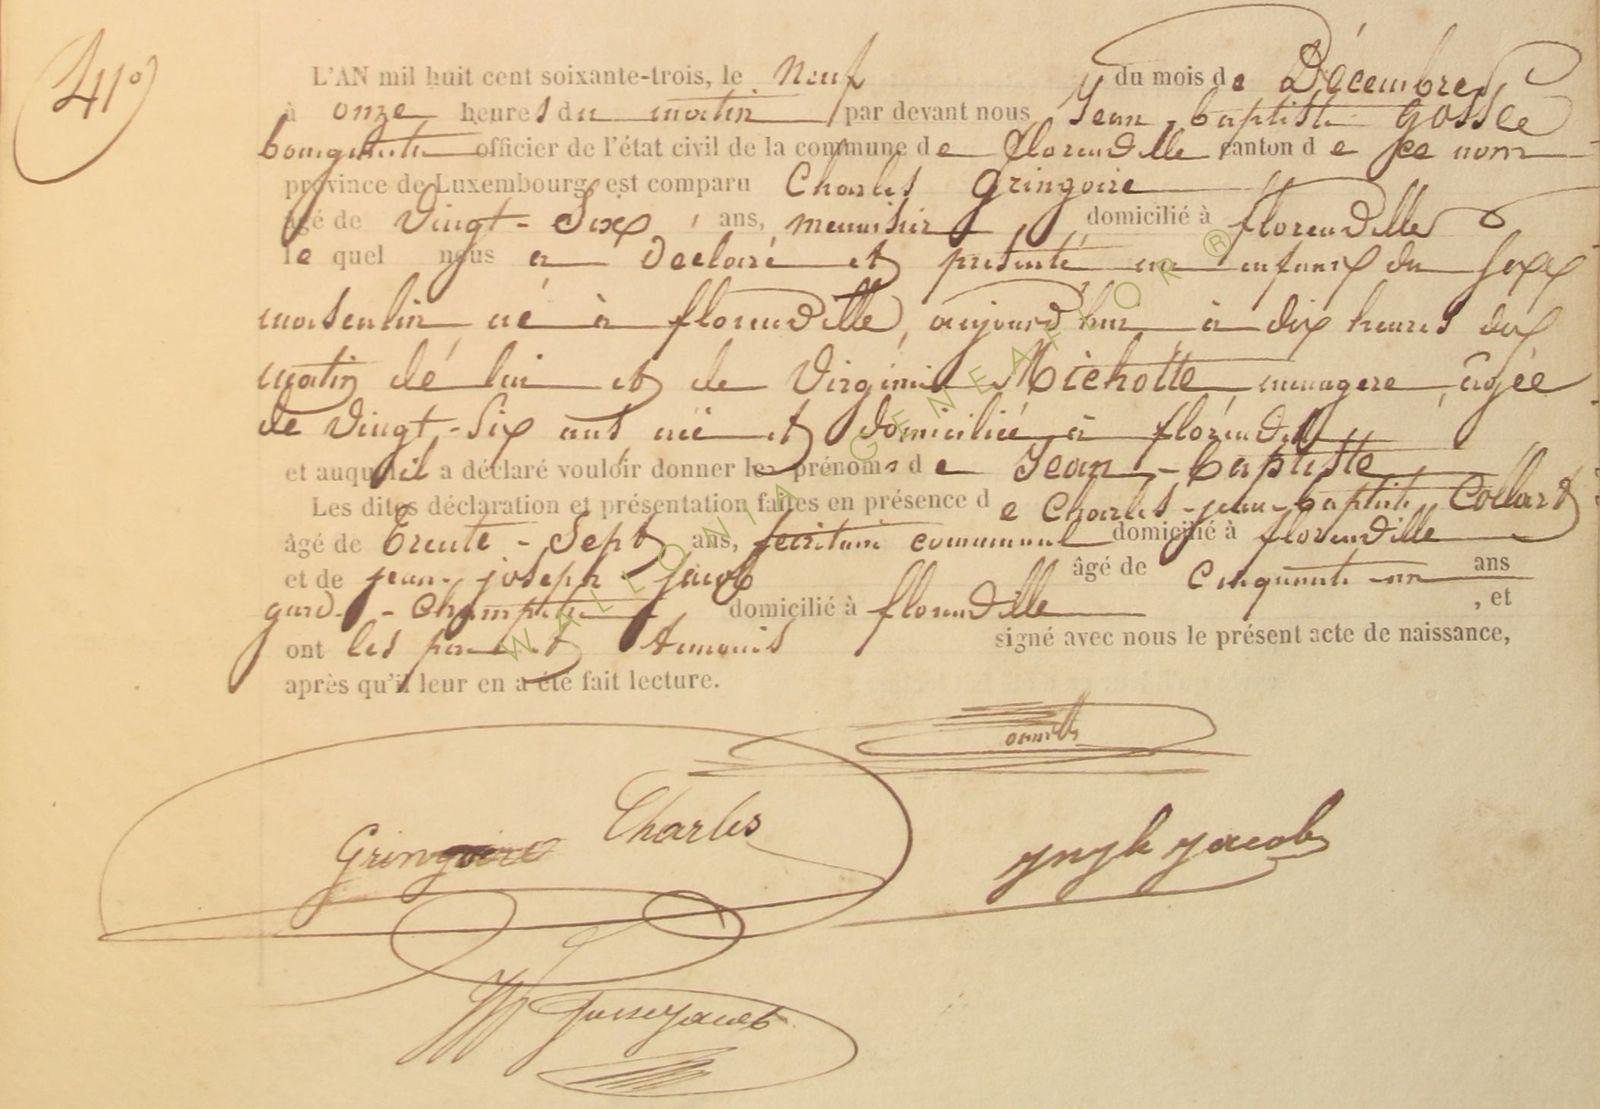 41°
L'AN mil huit cent soixante-trois, le neuf du mois de Décembre
à onze heures du matin par devant nous Jean-baptiste Gosse
bourgmestre officier de l'état civil de la commune de florenville canton de ce nom
province de Luxembourg est comparu Charles Gringoire
âgé de Vingt-Six ans, menuisier domicilié à florenville
le quel nous a déclaré et présenté un enfant du sexe
masculin né à florenville, aujourd'hui à dix heures du
matin dé lui et de Virginie Michotte ménagère, âgée
de Vingt-Six ans née et domiciliée à florenville
et auquel il a déclaré vouloir donner les prénoms de Jean-baptiste
Les dites déclaration et présentation faites en présence de Charles-jean-baptiste Collard
âgé de Trente-Sept ans, secrétaire communal domicilié à florenville
et de jean-joseph jacob âgé de Cinquante-un ans
garde-Champêtre domicilié à florenville , et
ont les père et témoins signé avec nous le présent acte de naissance,
après qu'il leur en a été fait lecture.
Gringoire Charles
jacob
WALLONIA GENEALOR®